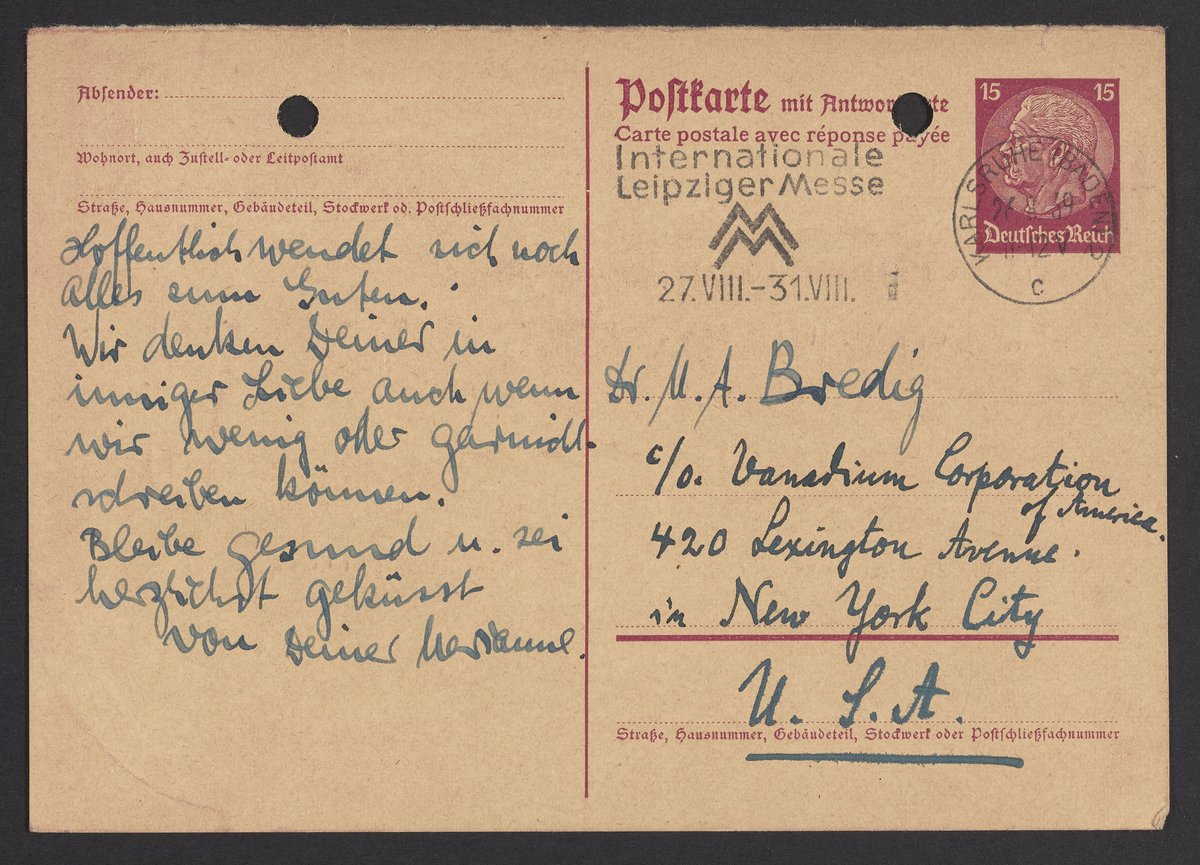 Absender:
Wohnort, auch Zustell- oder Leitpostamt
Straße, Hausnummer, Gebäudeteil, Stockwerk od. Postschließfachnummer
Hoffentlich wendet sich noch
Alles zum Guten.
Wir denken Deiner in
inniger Liebe auch wenn
wir wenig oder garnicht
schreiben können.
Bleibe gesund u. sei
herzlichst geküsst
von Deiner Marianne.
Postkarte mit
Carte postale avec réponse payée
Internationale
Leipziger Messe
27.VIII.-31.VIII.
15 15
Deutsches Reich
KARLSRUHE (BADEN)
c
Dr. M. A. Bredig
c/o. Vanadium Corporation
of America.
420 Lexington Avenue.
in New York City
U. S. A.
Straße, Hausnummer, Gebäudeteil, Stockwerk oder Postschließfachnummer